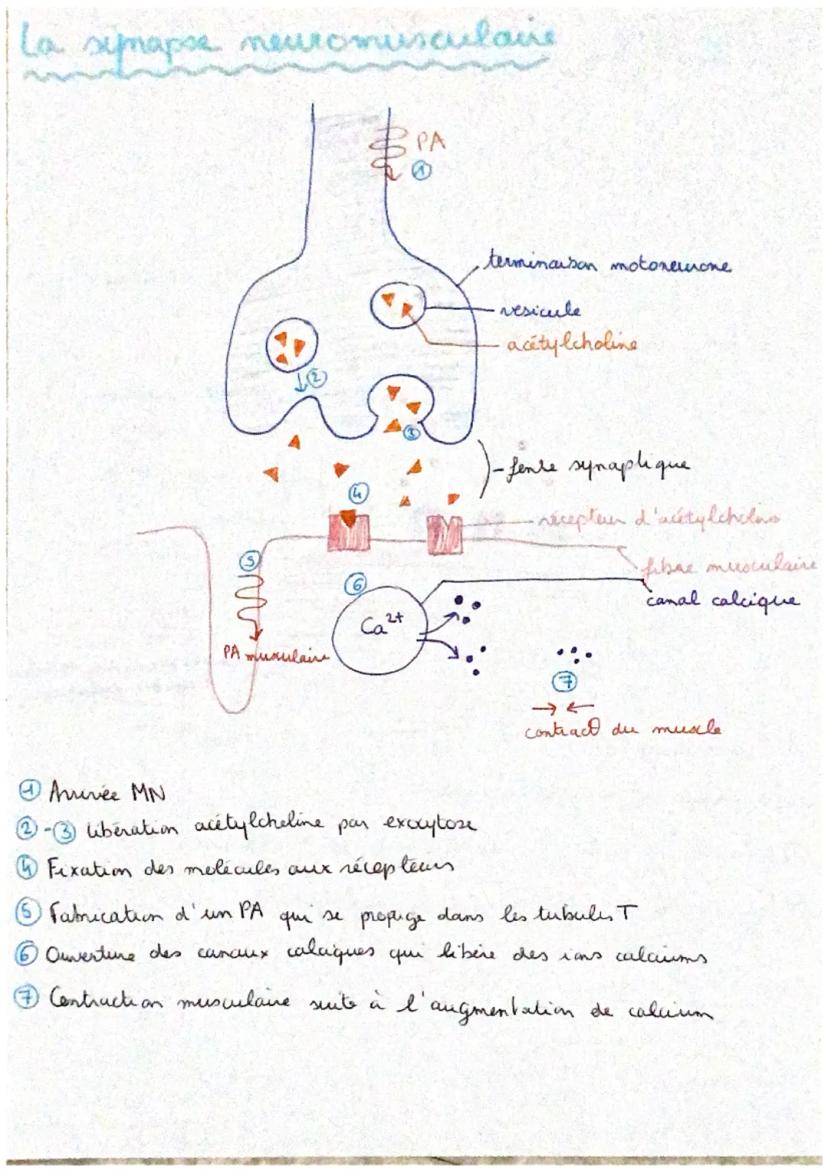 La synapse neuromusculaire
PA
①
terminaison motoneurone
vésicule
acétylcholine
②
③
fente synaptique
④
récepteur d'acétylcholine
fibre musculaire
⑤
⑥
canal calcique
Ca²⁺
PA musculaire
⑦
contract° du muscle
① Arrivée MN
②-③ libération acétylcholine par exocytose
④ Fixation des molécules aux récepteurs
⑤ Fabrication d'un PA qui se propage dans les tubules T
⑥ Ouverture des canaux calciques qui libère des ions calciums
⑦ Contraction musculaire suite à l'augmentation de calcium